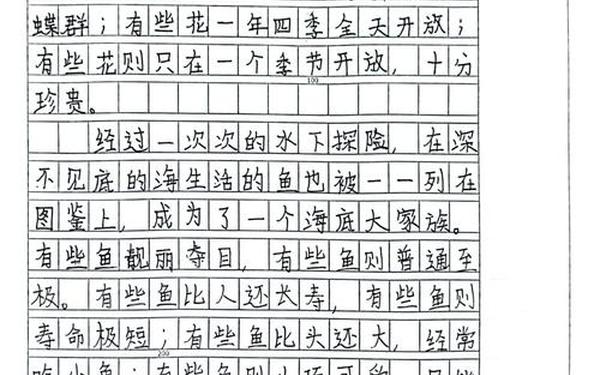 蝶群；有些花一年四季全天开放；
有些花则只在一个季节开放，十分
100
珍贵。
经过一次次的水下探险，在深
不见底的海生活的鱼也被一一列在
图鉴上，成为了一个海底大家族。
有些鱼靓丽夺目，有些鱼则普通至
极。有些鱼比人还长寿，有些鱼则
寿命极短；有些鱼比头还大，经常
200
吃小鱼；有些鱼则小巧可